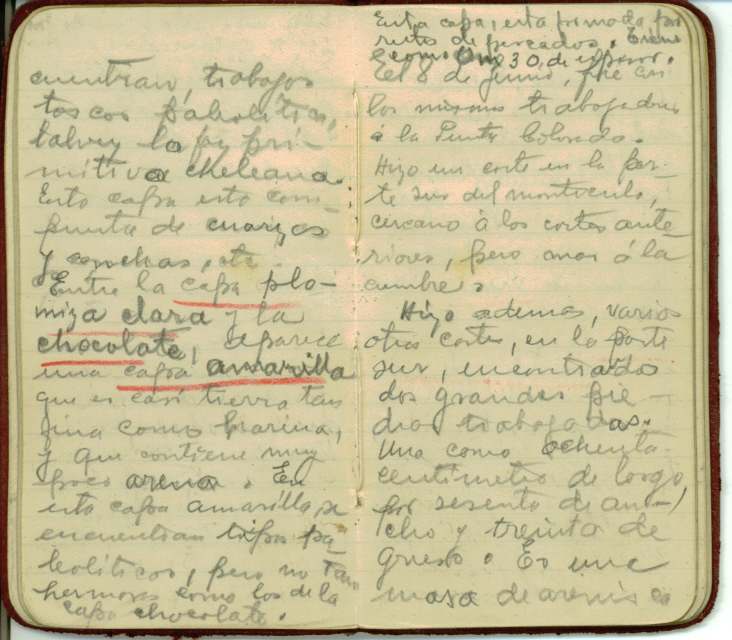 cuentran, trabajos
toscos paleolíticos,
talvez lo py pri-
mitivo cheleana.
Esta capa esta com-
puesta de cuarzos
y conchas, etc.
Entre la capa plo-
miza clara y la
chocolate, aparece
una capa amarilla
que es casi tierra tan
fina como harina,
y que contiene muy
poco arena. En
esta capa amarilla, se
encuentran tipos pa-
leolíticos, pero no tan
hermosos como los de la
capa chocolate.
Esta capa, esta formada por
restos de pescados. Tiene
como 0m30, de espesor.
El 8 de Junio, fue con
los mismos trabajadores
á la Punta Colorada.
Hizo un corte en la par-
te sur del montículo,
cercano á los cortes ante-
riores, pero mas á la
cumbre.
Hizo ademas, varios
otros cortes, en la parte
sur, encontrados
dos grandes pie-
dras trabajadas.
Una como ochenta
centímetro de largo,
por sesenta de an-
cho y treinta de
grueso. Es una
masa de arenisca